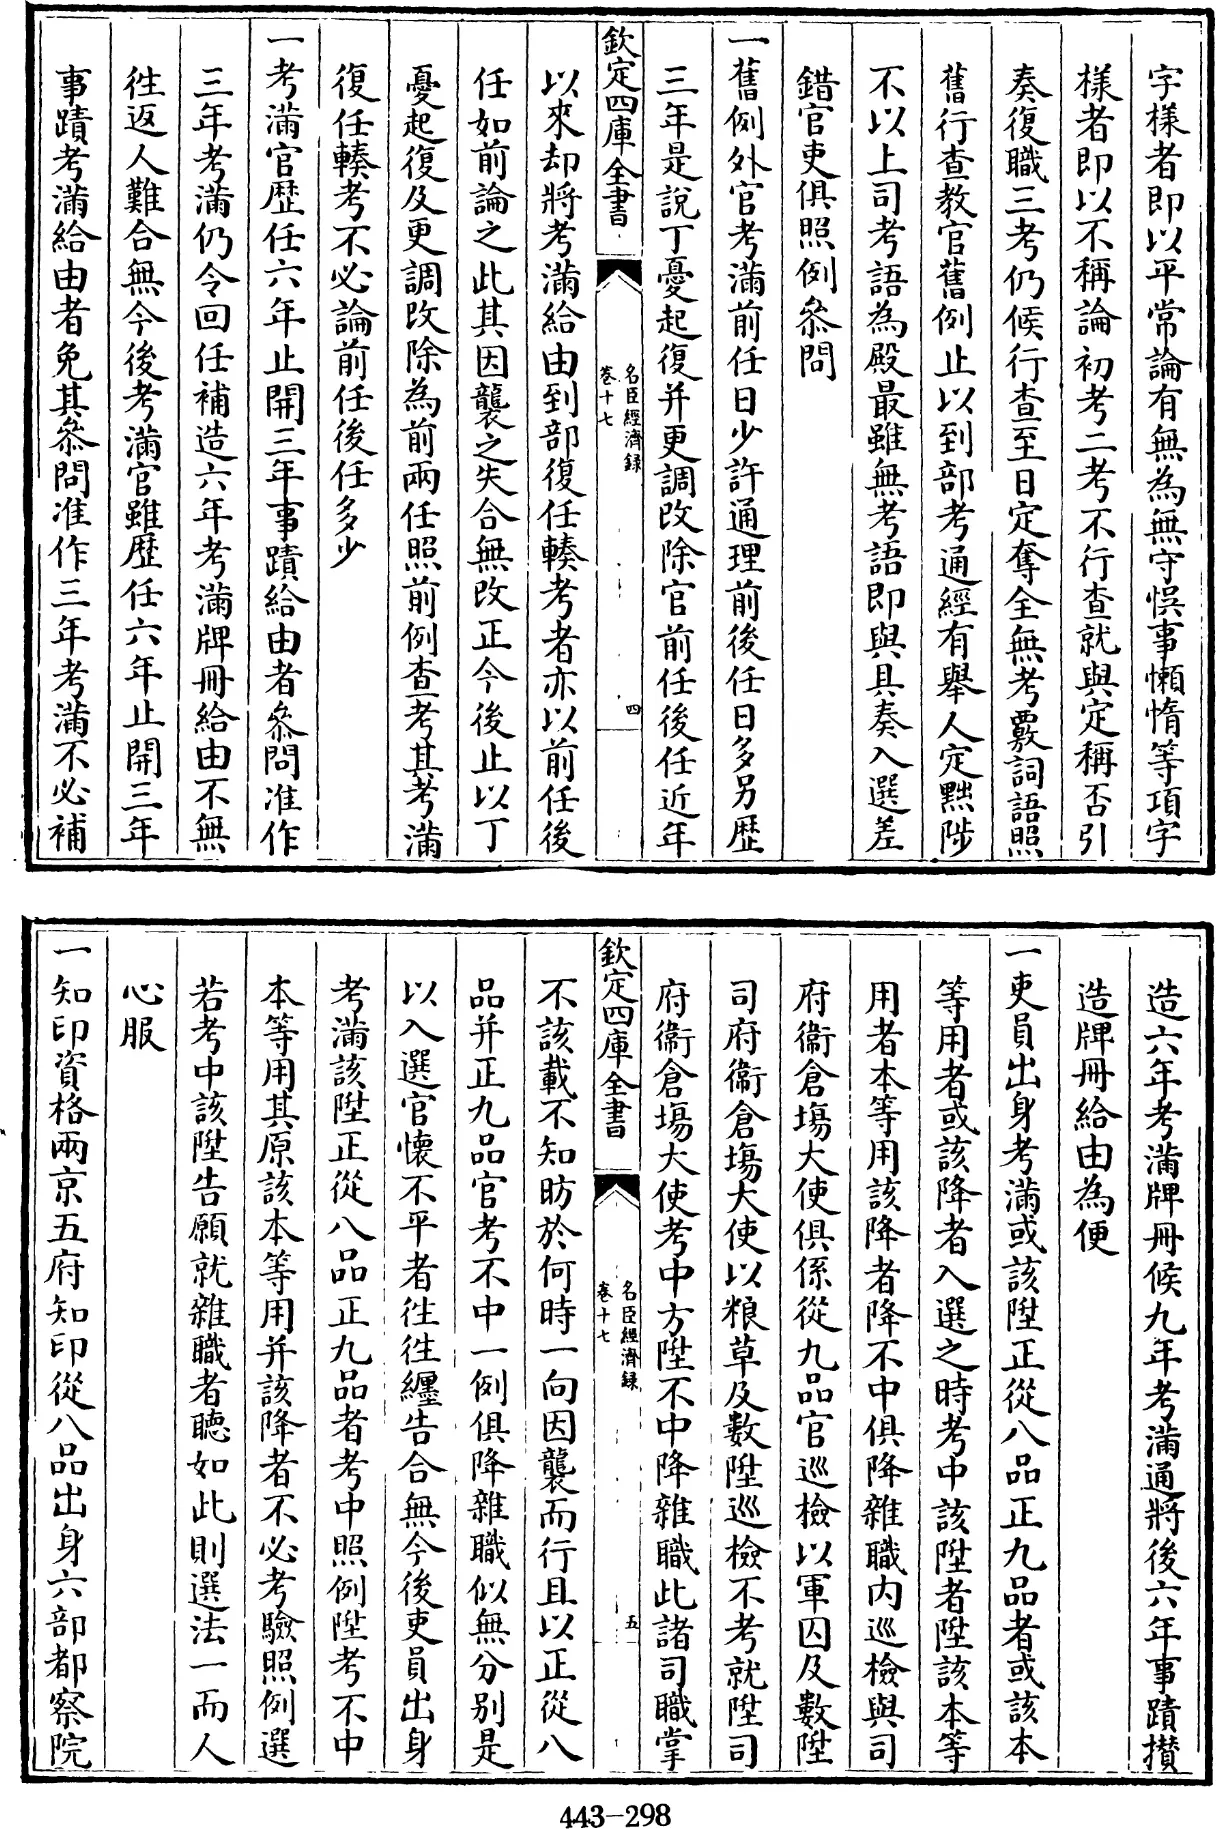 字様者即以平常論有無為無守悮事懶惰等項字
様者即以不稱論初考二考不行查就與定稱否引
奏復職三考仍候行查至日定奪全無考覈詞語照
舊行查教官舊例止以到部考通經有舉人定黜陟
不以上司考語為殿最雖無考語即與具奏入選差
錯官吏俱照例叅問
一舊例外官考滿前任日少許通理前後任日多另歴
三年是說丁憂起復并更調改除官前任後任近年
欽定四庫全書
名臣經濟録
卷十七
四
以來却將考滿給由到部復任輳考者亦以前任後
任如前論之此其因襲之失合無改正今後止以丁
憂起復及更調改除為前兩任照前例查考其考滿
復任輳考不必論前任後任多少
一考滿官歴任六年止開三年事蹟給由者叅問准作
三年考滿仍令回任補造六年考滿牌冊給由不無
徃返人難合無今後考滿官雖歴任六年止開三年
事蹟考滿給由者免其叅問准作三年考滿不必補
造六年考滿牌冊候九年考滿通將後六年事蹟攅
造牌冊給由為便
一吏員出身考滿或該陞正從八品正九品者或該本
等用者或該降者入選之時考中該陞者陞該本等
用者本等用該降者降不中俱降雜職内巡檢與司
府衞倉塲大使俱係從九品官巡檢以軍囚及數陞
司府衞倉塲大使以粮草及數陞巡檢不考就陞司
府衞倉塲大使考中方陞不中降雜職此諸司職掌
欽定四庫全書
名臣經濟録
卷十七
五
不該載不知昉於何時一向因襲而行且以正從八
品并正九品官考不中一例俱降雜職似無分别是
以入選官懐不平者徃徃纒告合無今後吏員出身
考滿該陞正從八品正九品者考中照例陞考不中
本等用其原該本等用并該降者不必考驗照例選
若考中該陞告願就雜職者聴如此則選法一而人
心服
一知印資格兩京五府知印從八品出身六部都察院
443-298